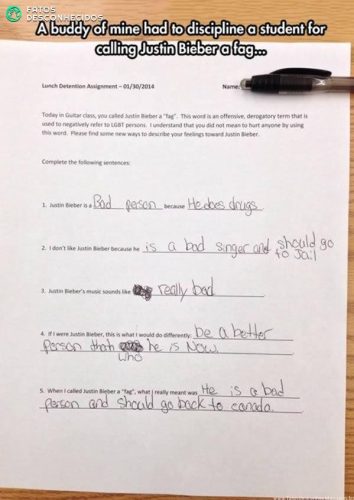 FATOS
DESCONHECIDOS
A buddy of mine had to discipline a student for
calling Justin Bieber a fag...
Lunch Detention Assignment – 01/30/2014
Name:
Today in Guitar class, you called Justin Bieber a "fag". This word is an offensive, derogatory term that is
used to negatively refer to LGBT persons. I understand that you did not mean to hurt anyone by using
this word. Please find some new ways to describe your feelings toward Justin Bieber.
Complete the following sentences:
1. Justin Bieber is a Bad person because He does drugs.
2. I don't like Justin Bieber because he is a bad singer and should go
to Jail
3. Justin Bieber's music sounds like really bad
4. If I were Justin Bieber, this is what I would do differently: be a better
person than he is Now.
who
5. When I called Justin Bieber a "fag", what I really meant was He is a bad
person and should go back to canada.